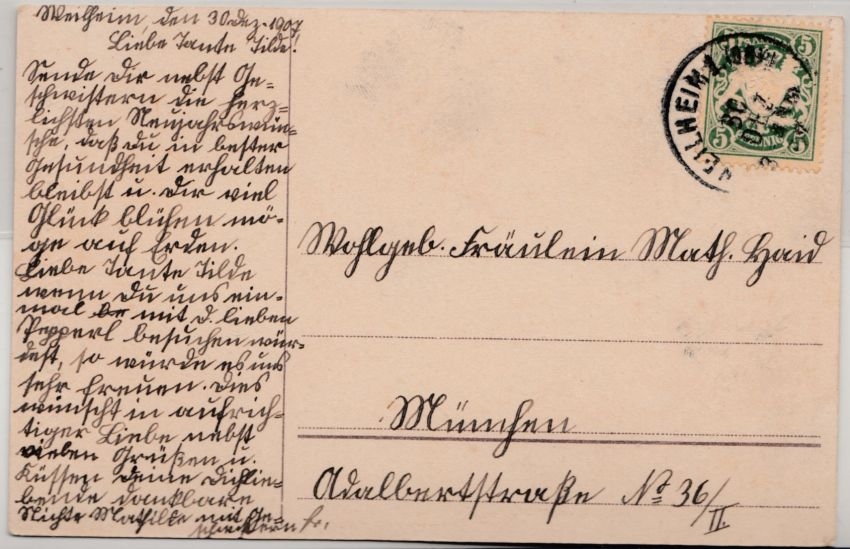 Weilheim den 30 Dez. 1907
Liebe Tante Tilde!
Sende Dir nebst Ge-
schwistern die herz-
lichsten Neujahrswün-
sche, daß du in bester
Gesundheit erhalten
bleibst u. Dir viel
Glück blühen mö-
ge auf Erden.
Liebe Tante Tilde
wenn Du uns ein-
mal mit d. lieben
Pepperl besuchen wür-
dest, so würde es uns
sehr freuen. Dies
wünscht in aufrich-
tiger Liebe nebst
vielen Grüßen u.
Küssen deine Dichlie-
bende dankbare
Nichte Mathilde mit Ge-
schwistern
WEILHEIM
30 DEZ
5 5
5 PFENNIG 5
Wohlgeb. Fräulein Math. Haid
München
Adalbertstraße No 36/II.